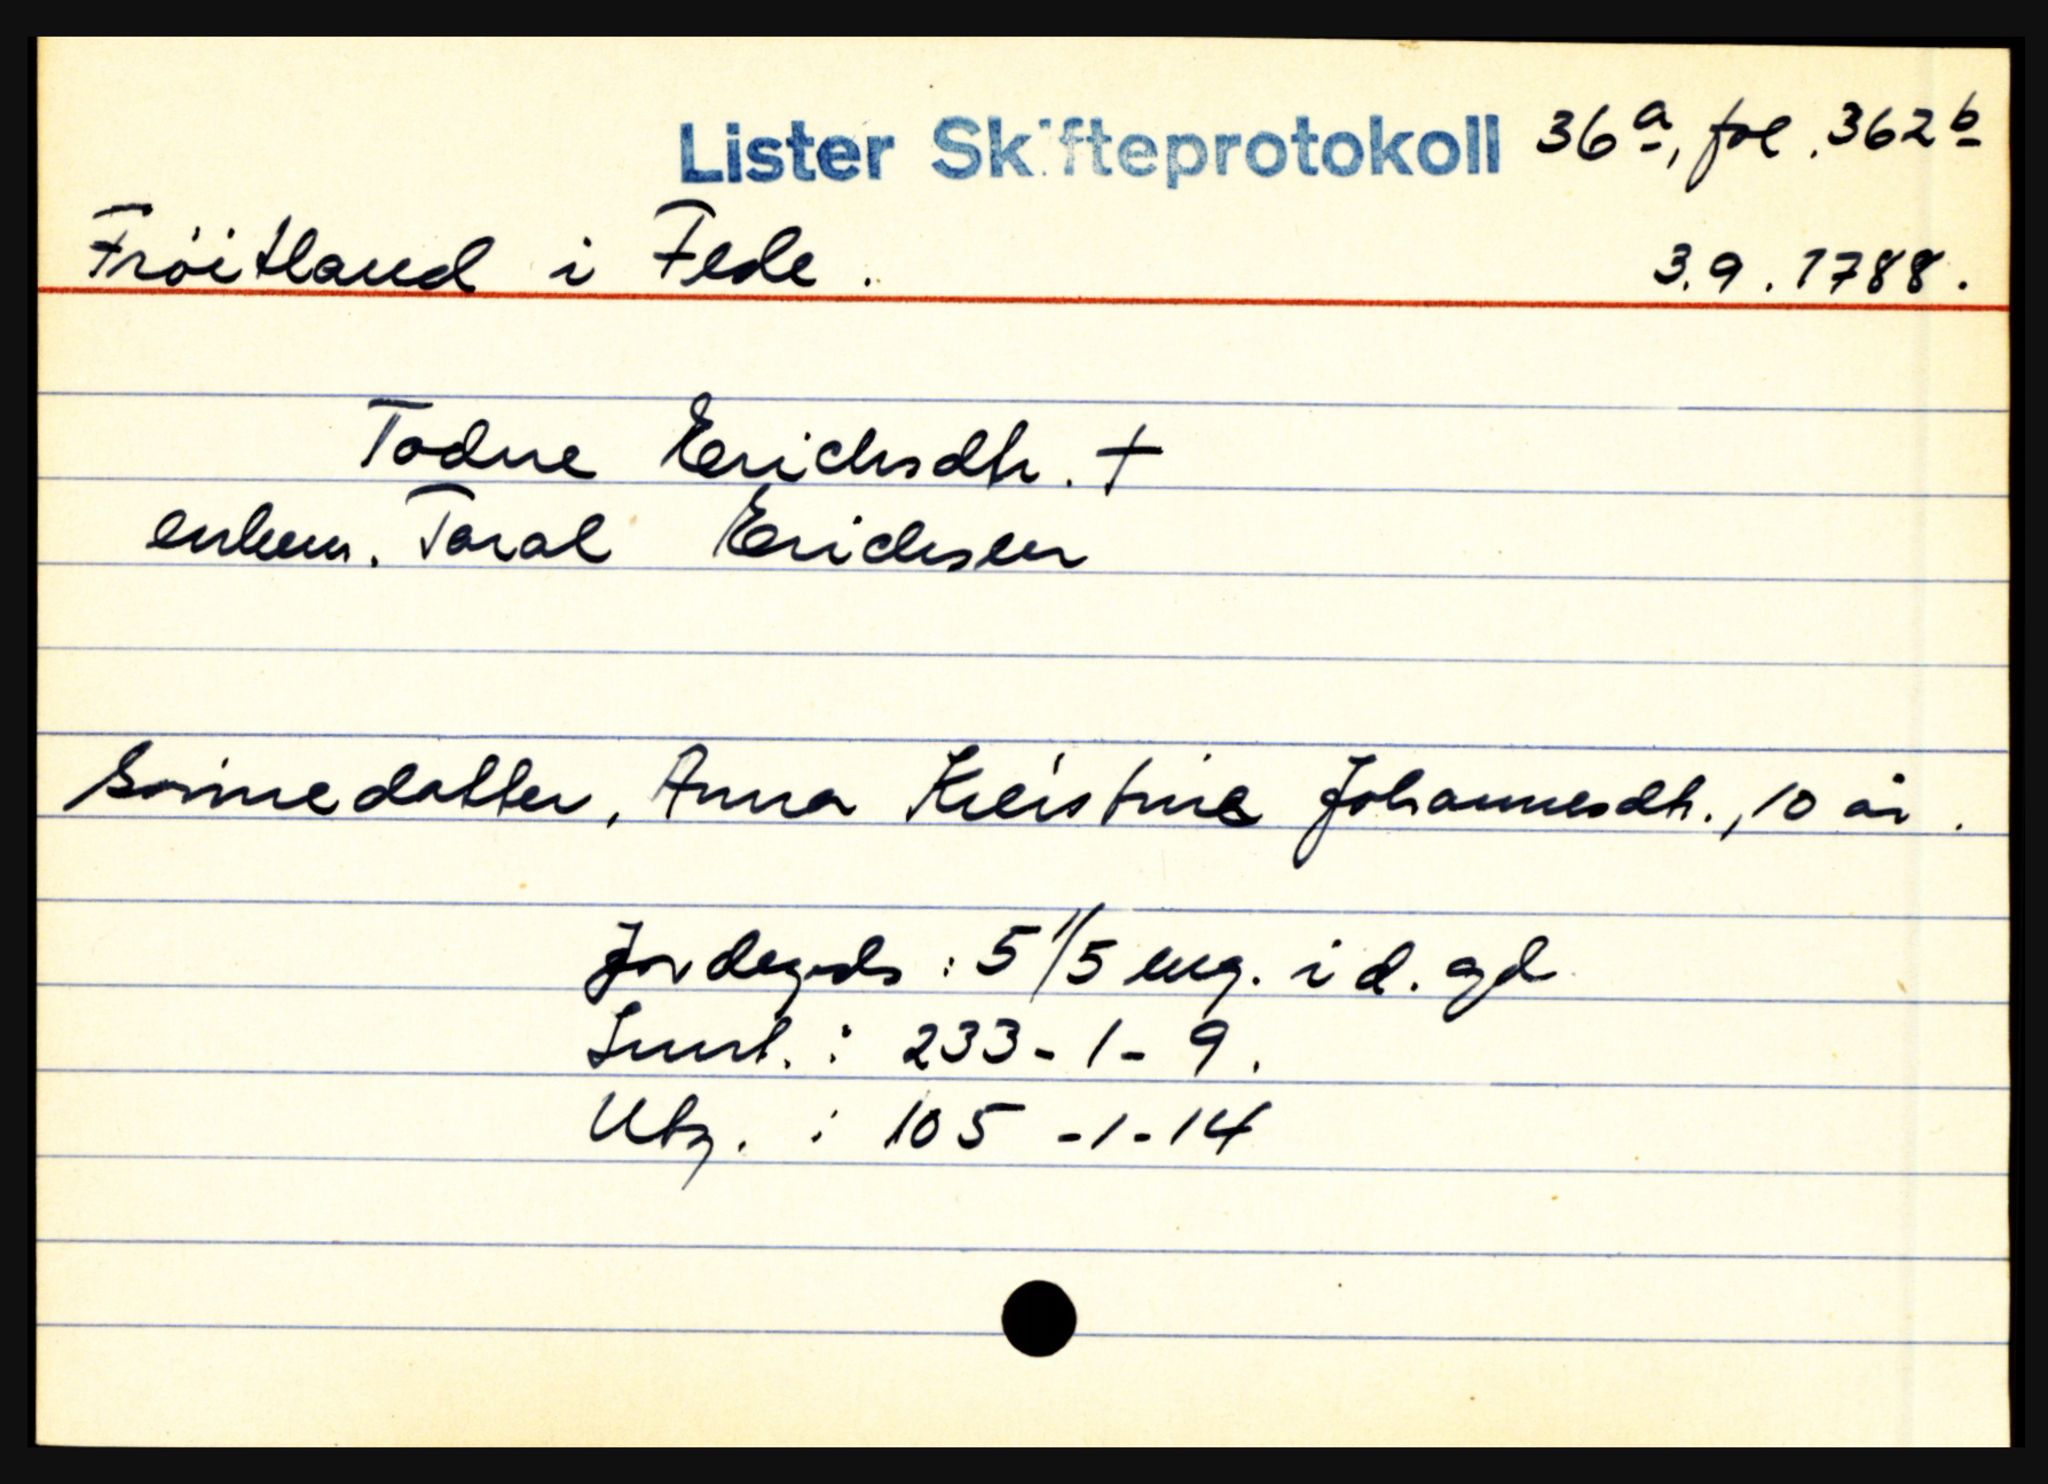 Lister Skifteprotokoll 36a, fol. 362b
Fröitland i Fede. 3.9.1788.
Todne Erichsdtr. †
enkem. Taral Erichsen
Sönnedatter, Anna Kristine Johannesdtr., 10 år.
Jordegods: 5 1/5 eng. i d. gd
Innt.: 233-1-9.
Utg.: 105-1-14